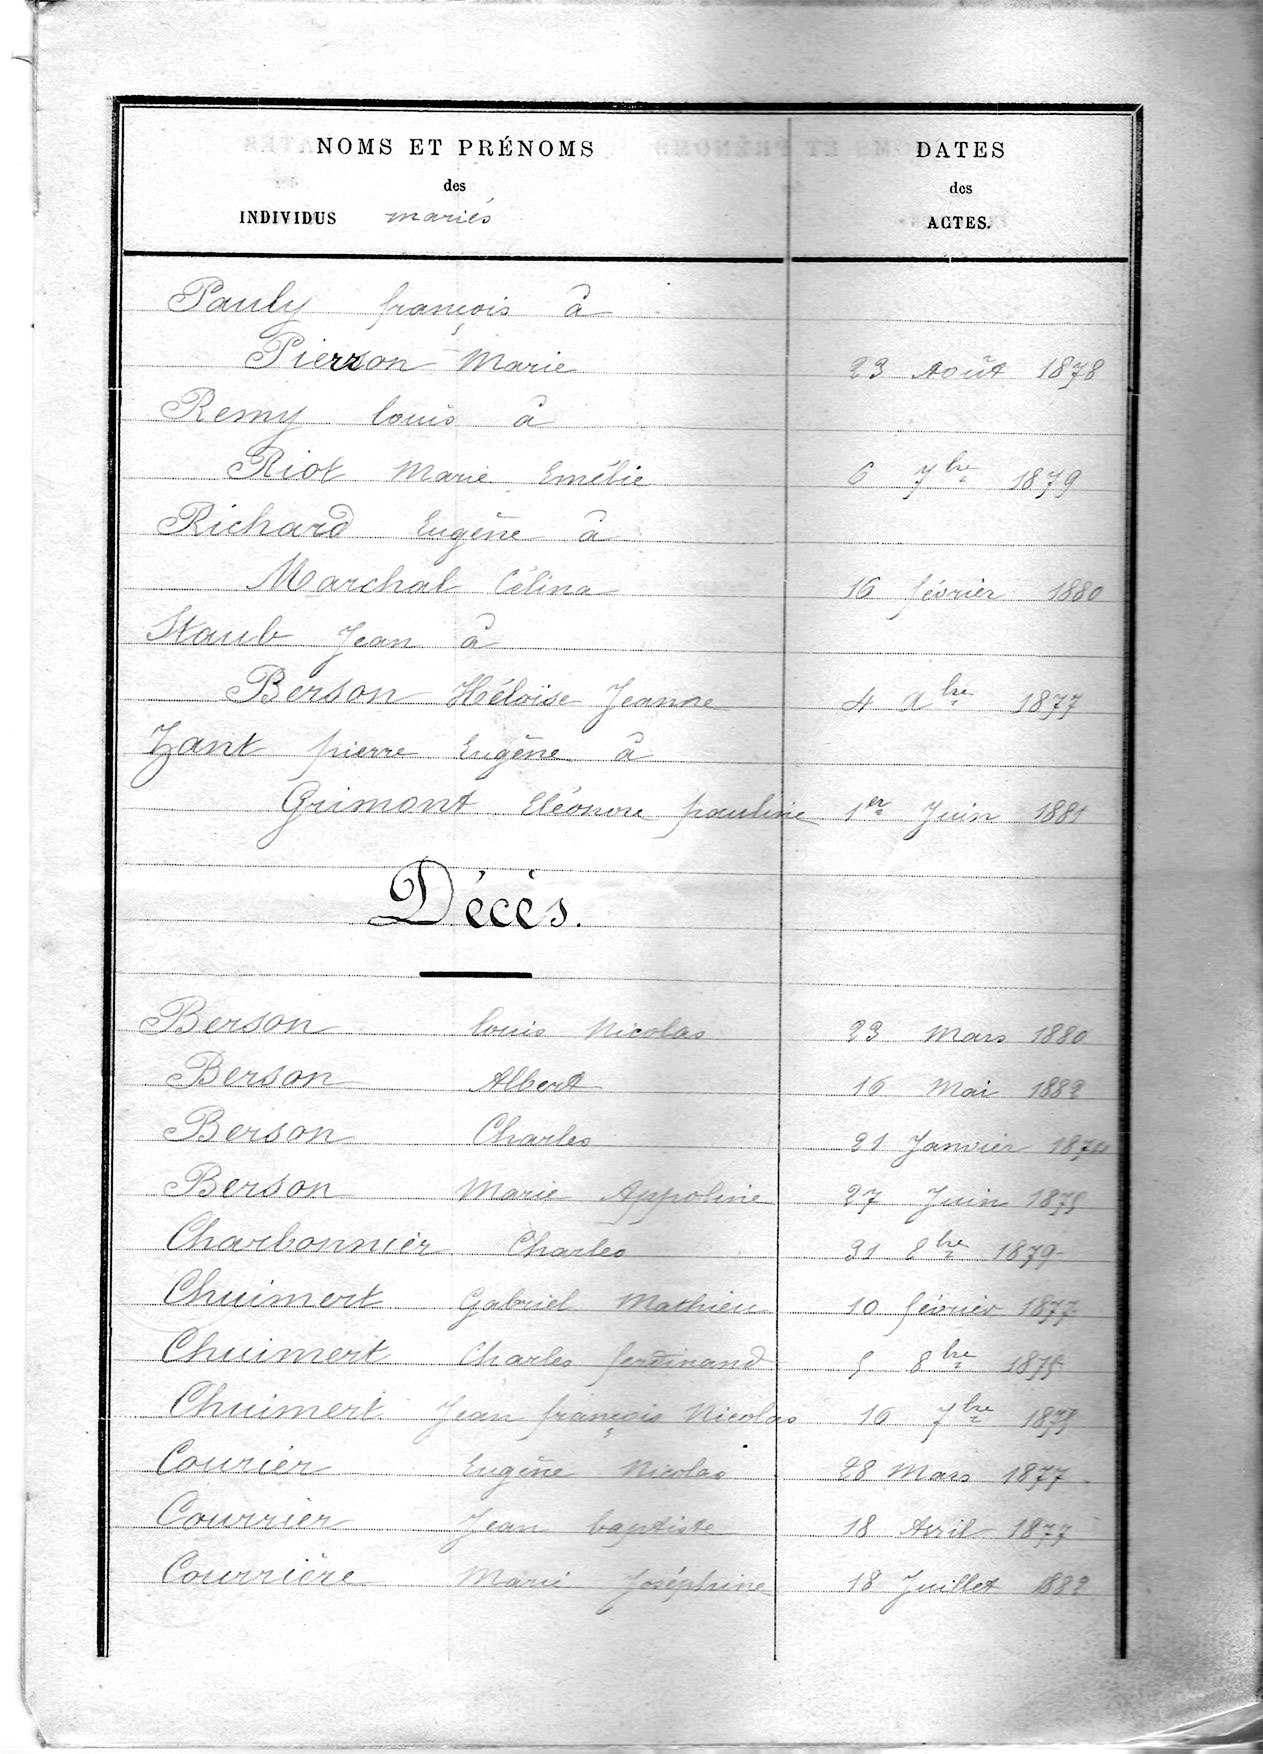 NOMS ET PRÉNOMS
des
INDIVIDUS mariés
DATES
des
ACTES.
Pauly françois à
Pierson Marie 23 Août 1878
Remy louis à
Riot Marie Emélie 6 7bre 1879
Richard Eugène à
Marchal Célina 16 février 1880
Staub Jean à
Berson Héloïse Jeanne 4 Xbre 1877
Zant pierre Eugène à
Grimont Eléonore pauline 1er Juin 1881
Décès.
Berson louis Nicolas 23 Mars 1880
Berson Albert 16 Mai 1882
Berson Charles 21 Janvier
Berson Marie Appoline 27 Juin 1875
Charbonnier Charles 31 8bre 1879
Chuimert Gabriel Mathieu 10 février 1877
Chuimert Charles ferdinand 5 8bre 1875
Chuimert Jean françois Nicolas 16 7bre 1875
Courier Eugène Nicolas 28 Mars 1877
Courrier Jean baptiste 18 Avril 1877
Courrière Marie Joséphine 18 Juillet 1882